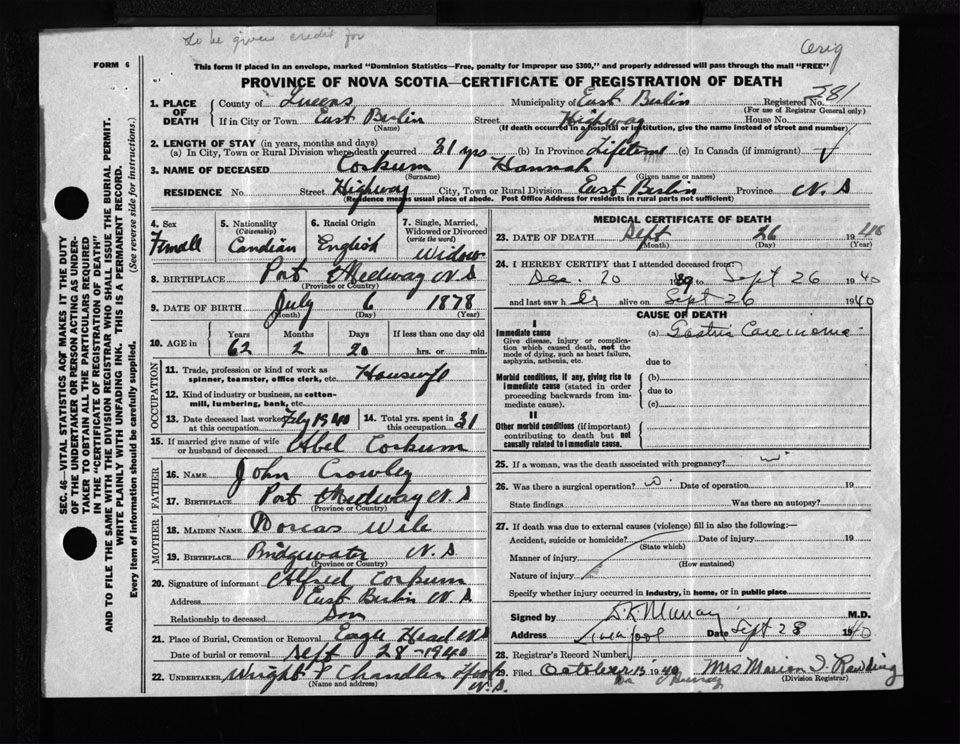 to be given credit for
Orig
FORM 6
This form if placed in an envelope, marked "Dominion Statistics—Free, penalty for improper use $300," and properly addressed will pass through the mail "FREE"
PROVINCE OF NOVA SCOTIA—CERTIFICATE OF REGISTRATION OF DEATH
SEC. 46—VITAL STATISTICS ACT MAKES IT THE DUTY
OF THE UNDERTAKER OR PERSON ACTING AS UNDER-
TAKER TO OBTAIN ALL THE PARTICULARS REQUIRED
IN THE "CERTIFICATE OF REGISTRATION OF DEATH"
AND TO FILE THE SAME WITH THE DIVISION REGISTRAR WHO SHALL ISSUE THE BURIAL PERMIT.
WRITE PLAINLY WITH UNFADING INK. THIS IS A PERMANENT RECORD.
Every item of information should be carefully supplied. (See reverse side for instructions.)
1. PLACE OF DEATH { County of Queens Municipality of East Berlin Registered No. 281
(For use of Registrar General only)
If in City or Town East Berlin Street Highway House No.
(Name) (If death occurred in a hospital or institution, give the name instead of street and number)
2. LENGTH OF STAY (in years, months and days)
(a) In City, Town or Rural Division where death occurred 31 yrs (b) In Province Lifetime (c) In Canada (if immigrant) ✓
3. NAME OF DECEASED Corkum Hannah
(Surname) (Given name or names)
RESIDENCE No. Street Highway City, Town or Rural Division East Berlin Province N. S
(Residence means usual place of abode. Post Office Address for residents in rural parts not sufficient)
4. Sex Female
5. Nationality (Citizenship) Candian
6. Racial Origin English
7. Single, Married, Widowed or Divorced (write the word) Widow
8. BIRTHPLACE Port Medway N S
(Province or Country)
9. DATE OF BIRTH July 6 1878
(Month) (Day) (Year)
10. AGE in { Years Months Days If less than one day old
62 2 20 hrs. or min.
OCCUPATION
11. Trade, profession or kind of work as spinner, teamster, office clerk, etc. Housewife
12. Kind of industry or business, as cotton-mill, lumbering, bank, etc.
13. Date deceased last worked at this occupation 1940 14. Total yrs. spent in this occupation 31
15. If married give name of wife or husband of deceased Abel Corkum
FATHER
16. NAME John Crowley
17. BIRTHPLACE Port Medway N. S
(Province or Country)
MOTHER
18. MAIDEN NAME Dorcas Wile
19. BIRTHPLACE Bridgewater N. S
(Province or Country)
20. Signature of informant Alfred Corkum
Address East Berlin N S
Relationship to deceased Son
21. Place of Burial, Cremation or Removal Eagle Head N S
Date of burial or removal Sept 28 - 1940
22. UNDERTAKER Wright & Chandler L'pool
(Name and address) N.S.
MEDICAL CERTIFICATE OF DEATH
23. DATE OF DEATH Sept 26 1940
(Month) (Day) (Year)
24. I HEREBY CERTIFY that I attended deceased from:
Dec. 20 1939 to Sept 26 1940
and last saw her alive on Sept 26 1940
CAUSE OF DEATH
I
Immediate cause (a) Gastric Carcinoma
Give disease, injury or complica-
tion which caused death, not the
mode of dying, such as heart failure,
asphyxia, asthenia, etc. due to
Morbid conditions, if any, giving rise to (b)
immediate cause (stated in order due to
proceeding backwards from im-
mediate cause). (c)
II
Other morbid conditions (if important)
contributing to death but not
causally related to immediate cause.
25. If a woman, was the death associated with pregnancy?
26. Was there a surgical operation? Date of operation 19
State findings Was there an autopsy?
27. If death was due to external causes (violence) fill in also the following:—
Accident, suicide or homicide? Date of injury 19
(State which)
Manner of injury
(How sustained)
Nature of injury
Specify whether injury occurred in industry, in home, or in public place
Signed by Murray M.D.
Address Liverpool Date Sept 28 1940
28. Registrar's Record Number
29. Filed October 15 1940 Mrs Marion I. Rawding
(Division Registrar)
Dr Murray